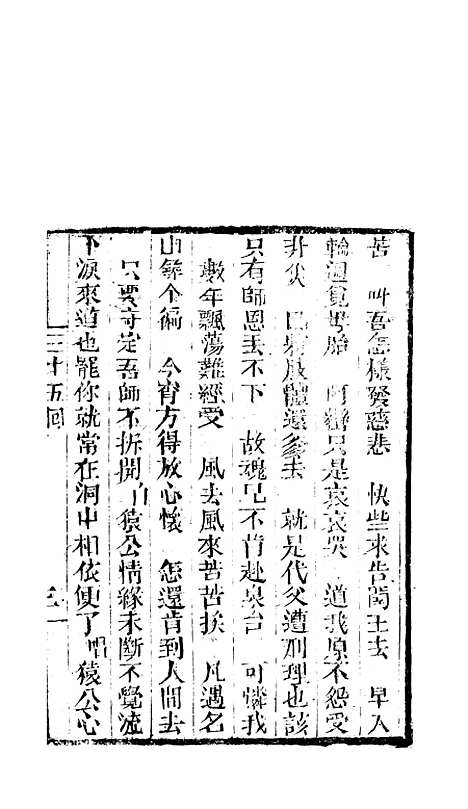 苦　叫吾怎樣發慈悲　快些來告閻王去　早入
輪迴覓母胎　阿巒只是哀哀哭　道我原不怨受
非災　已將肢體還爹去　就是代父遭刑理也該
只有師恩丟不下　故魂兒不肯赴泉台　可憐我
數年飄蕩難經受　風去風來苦苦挨　凡遇名
山尋个徧　今宵方得放心懷　怎還肯到人間去
只要奇定吾師不拆開　白猿公情緣未斷不覺流
下淚來道也罷你就常在洞中相依便了唱猿公心
三十五回